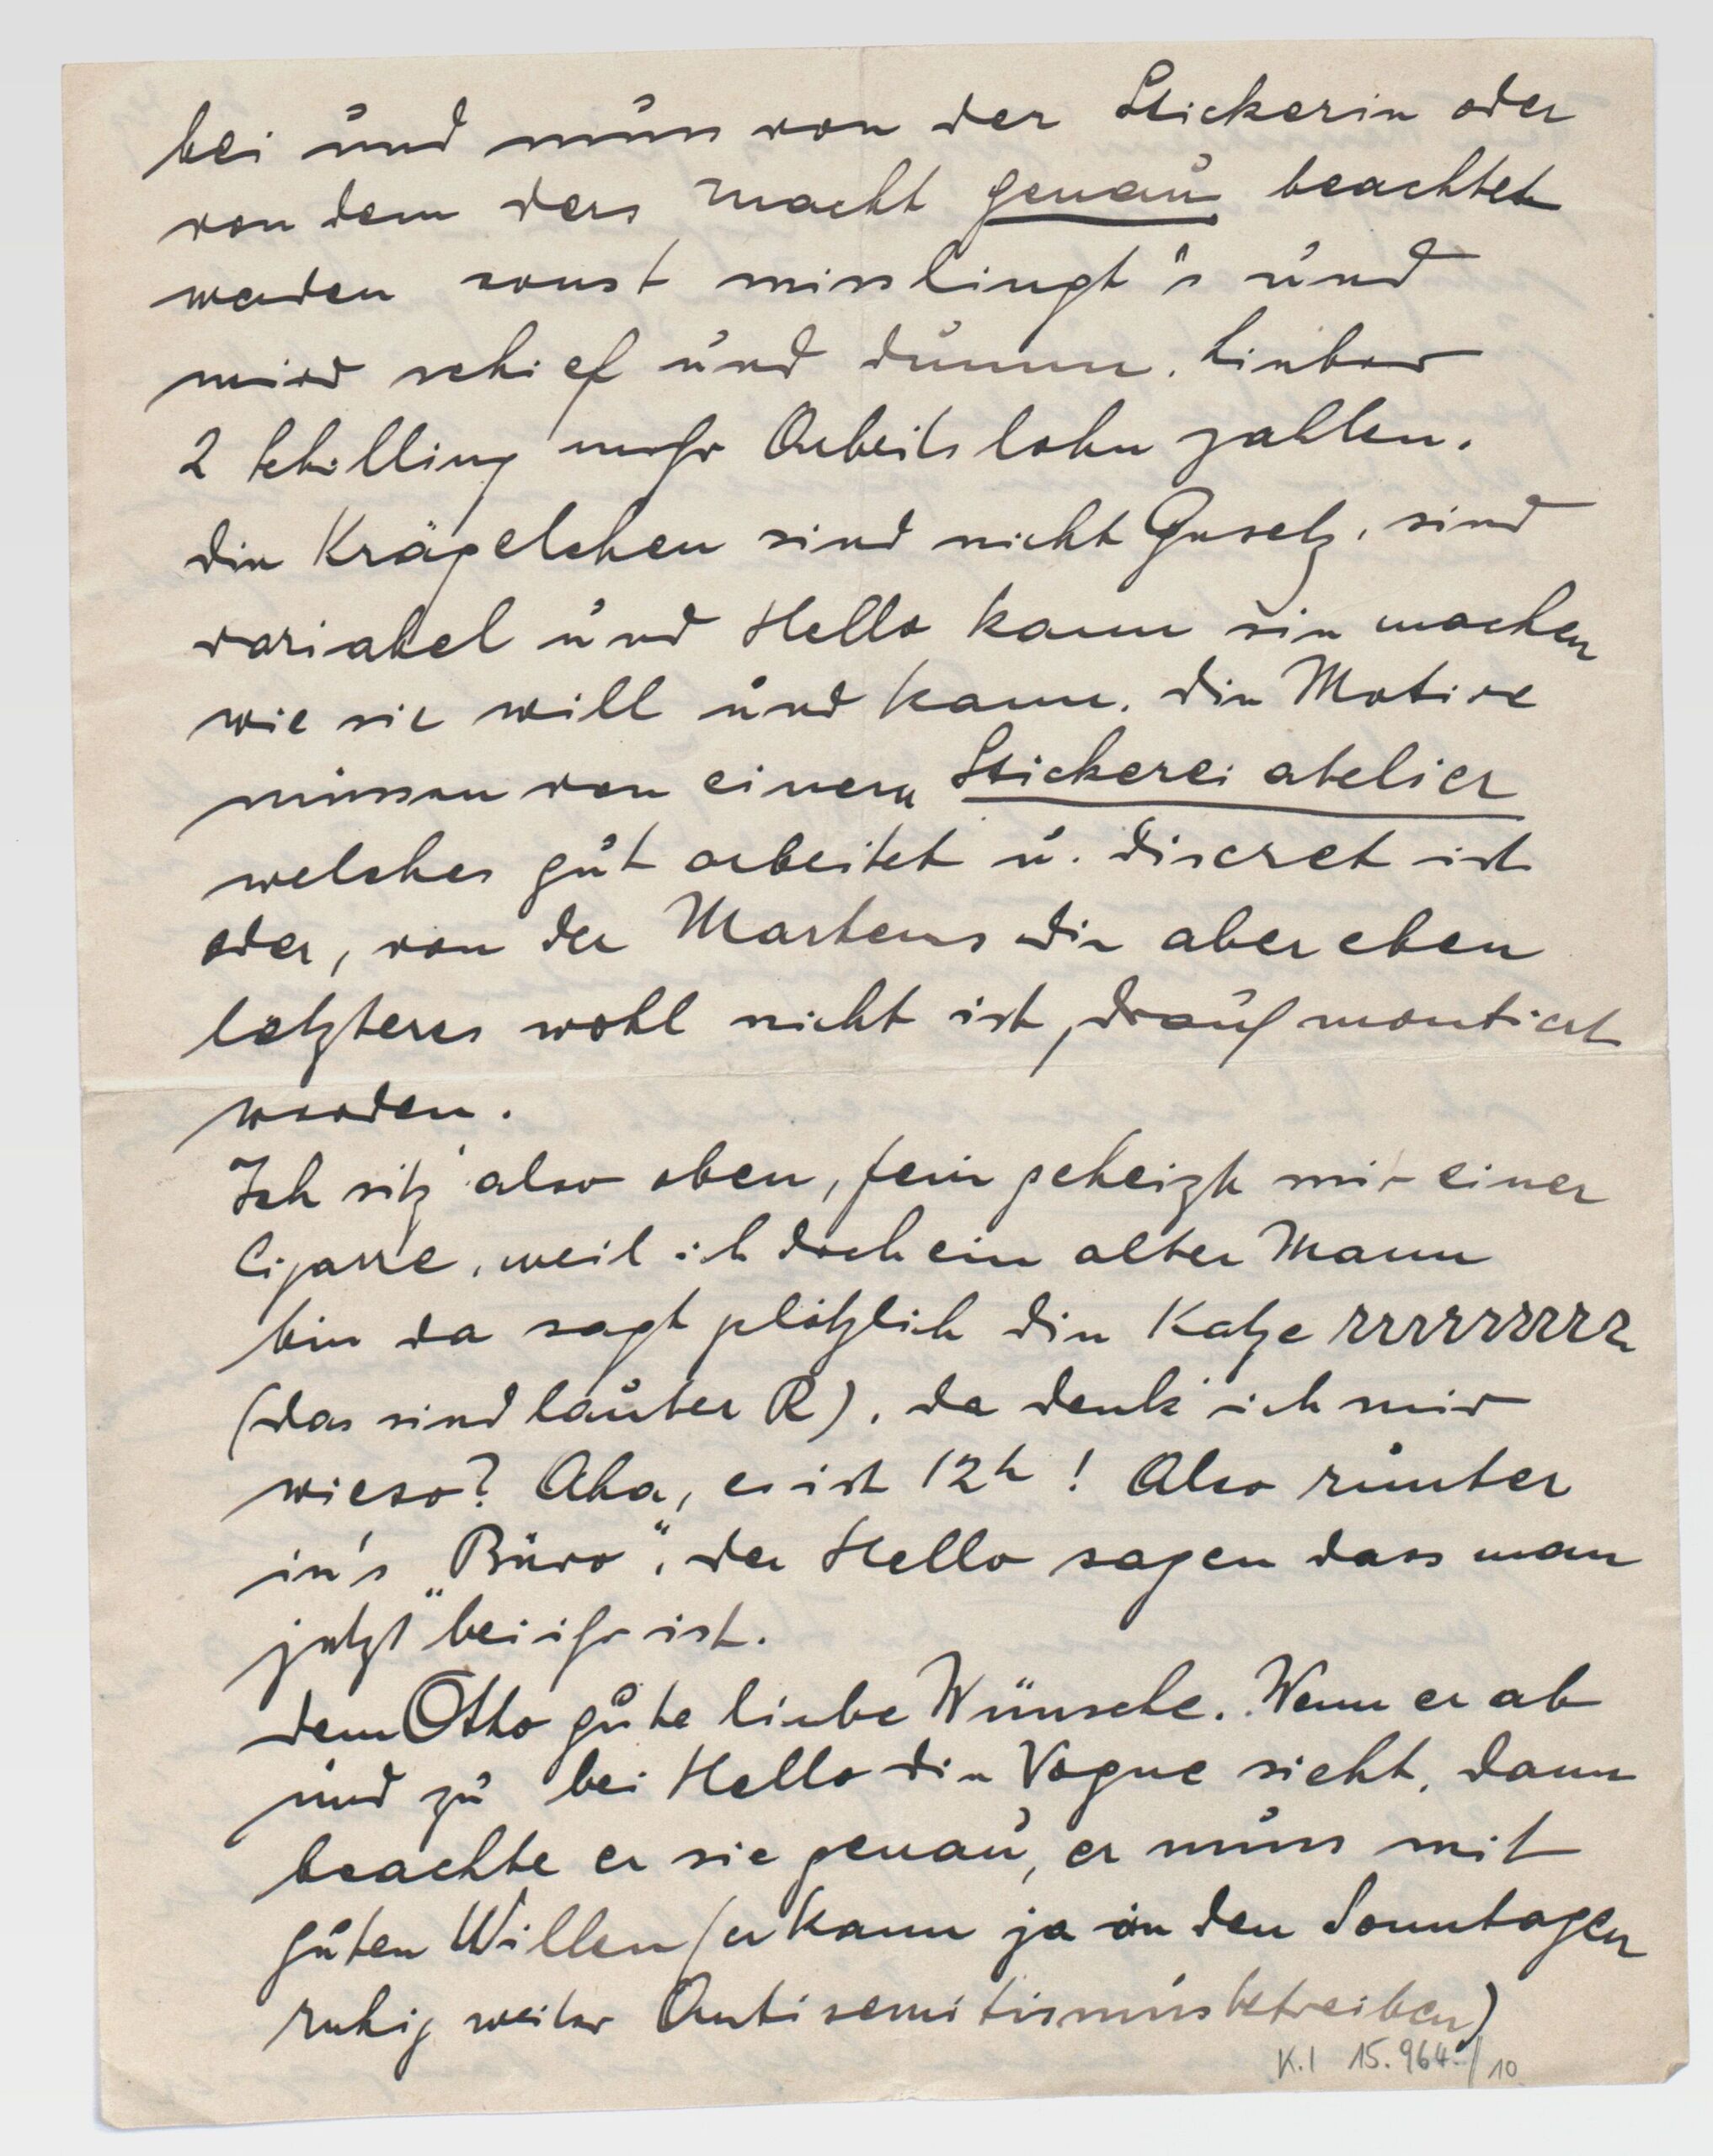 bei und muss von der Stickerin oder
von dem ders macht genau beachtet
werden sonst misslingt's und
wird schief und dumm. Lieber
2 Schilling mehr Arbeitslohn zahlen.
die Krägelchen sind nicht Gesetz, sind
variabel und Hello kann sie machen
wie sie will und kann. die Motive
müssen von einem Stickerei atelier
welches gut arbeitet u. discret ist
oder, von der Martens die aber eben
letzteres wohl nicht ist, drauf montiert
werden.
Ich sitz' also oben, fein geheizt mit einer
Cigarre, weil ich doch ein alter Mann
bin da sagt plötzlich die Katze rrrrrrrrr
(das sind lauter R), da denk' ich mir
wieso? Aha, es ist 12h! Also runter
in's „Büro“, der Hello sagen dass man
jetzt "bei ihr ist.
dem Otto gute liebe Wünsche. Wenn er ab
und zu bei Hello die Vogue sieht, dann
beachte er sie genau, er muss mit
guten Willen (er kann ja an den Sonntagen
ruhig weiter Antisemitismus betreiben)
K.I 15.964/10